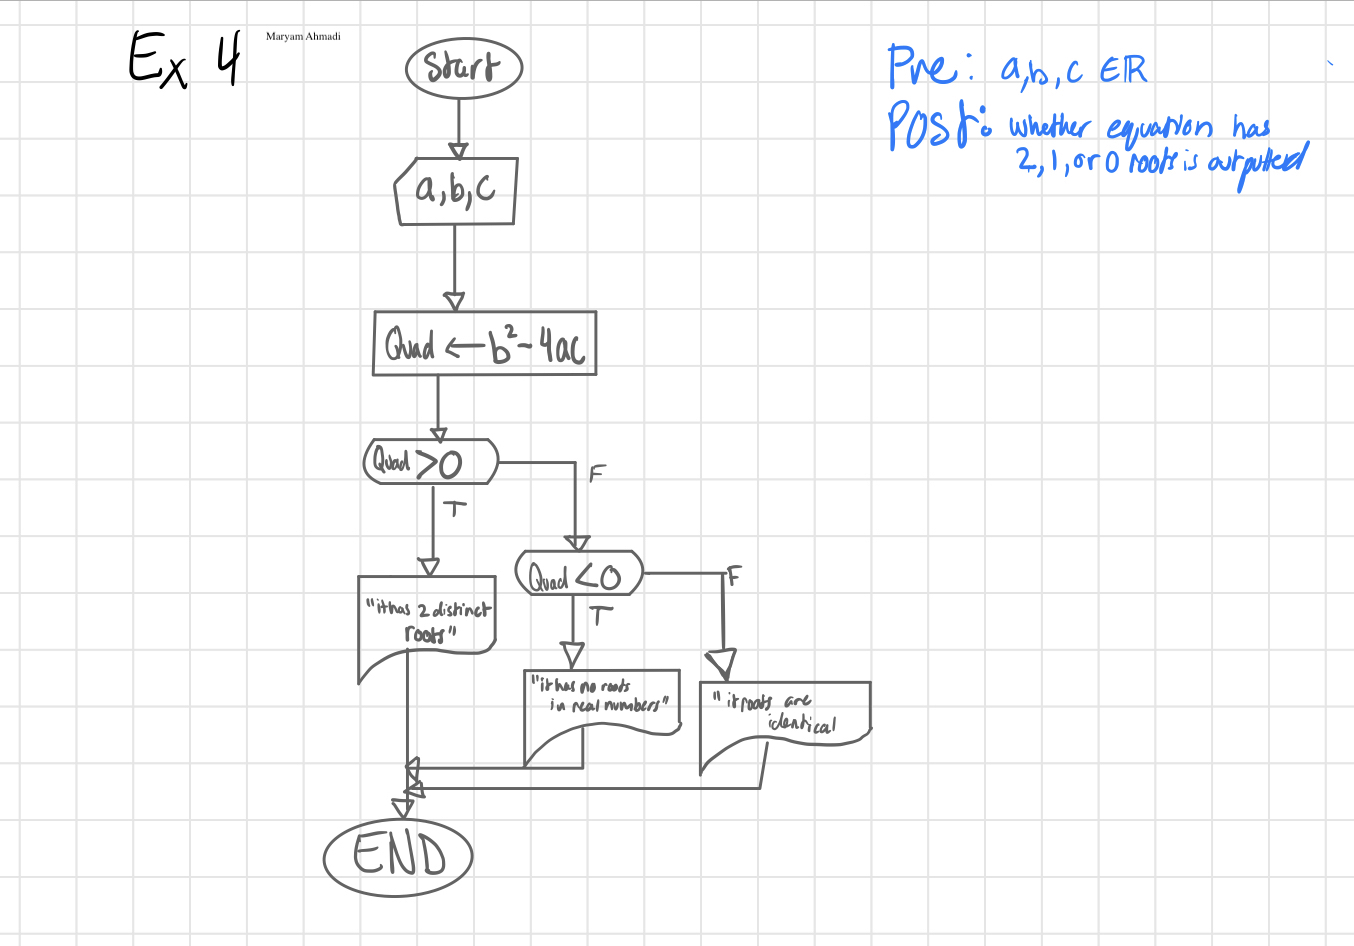 Ex 4
Maryam Ahmadi
Pre: a, b, c ∈ ℝ
Post: whether equation has
2, 1, or 0 roots is outputted
Start
a, b, c
Quad ← b² - 4ac
Quad > 0
F
T
Quad < 0
F
T
"it has 2 distinct
roots"
"it has no roots
in real numbers"
"it roots are
identical
END